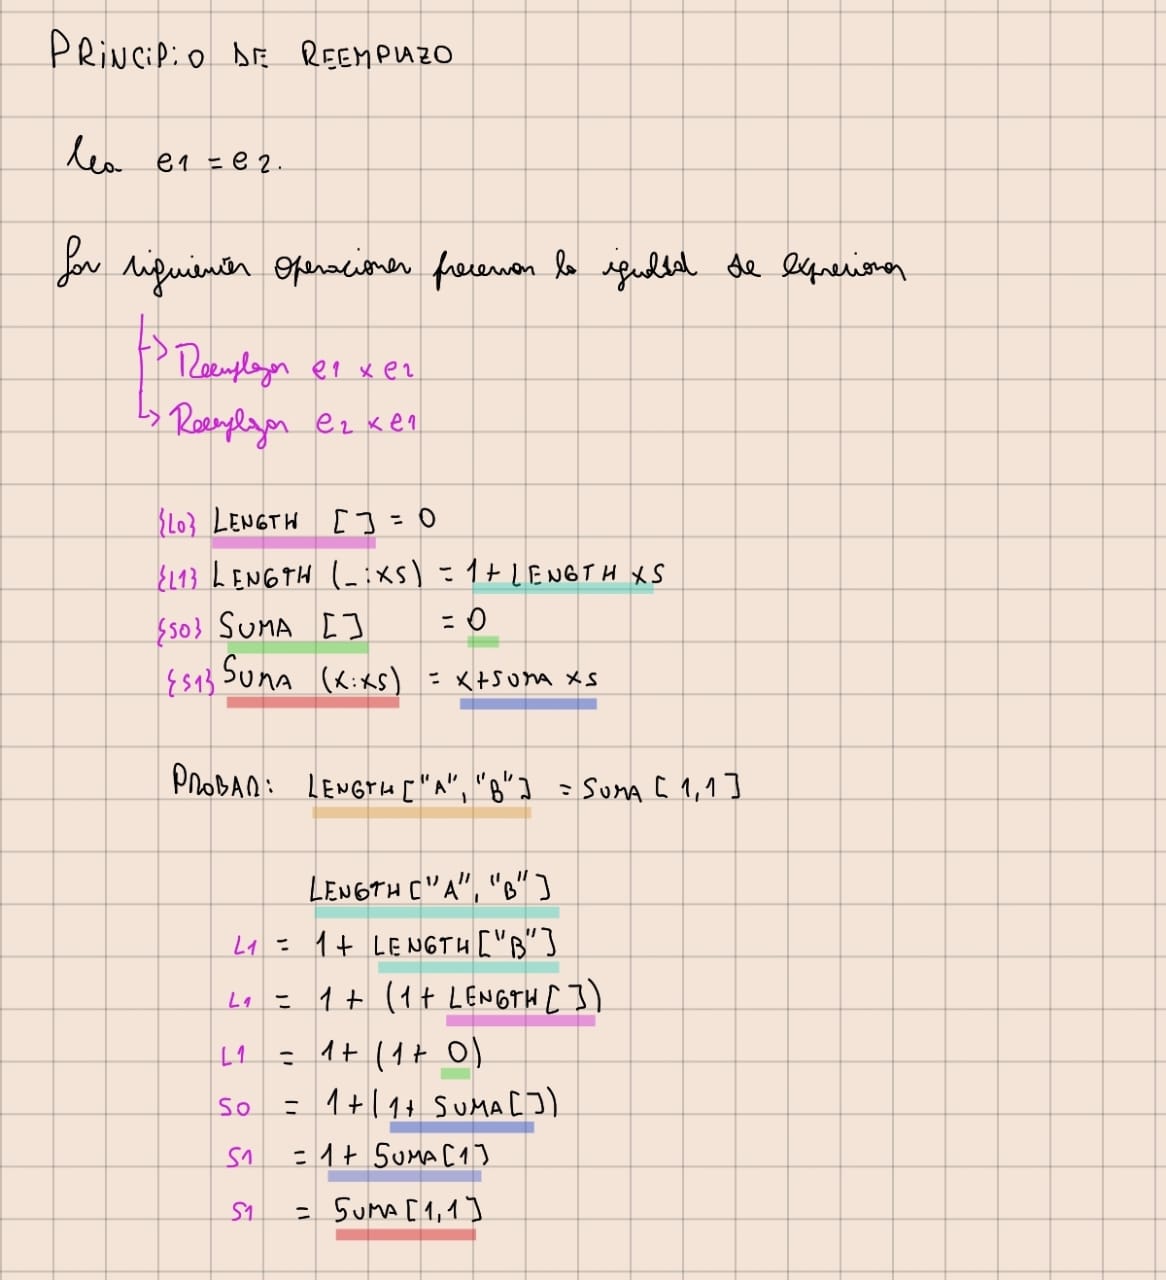 PRINCIPIO DE REEMPLAZO
Sea e1 = e2.
Las siguientes operaciones preservan la igualdad de expresiones
Reemplazar e1 x e2
Reemplazar e2 x e1
{L0} LENGTH [] = 0
{L1} LENGTH (_:xs) = 1 + LENGTH XS
{S0} SUMA [] = 0
{S1} SUMA (x:xs) = x+SUMA xs
PROBAR: LENGTH["A", "B"] = SUMA [1,1]
LENGTH["A", "B"]
L1 = 1+ LENGTH["B"]
L1 = 1 + (1+ LENGTH[])
L1 = 1+ (1+ 0)
S0 = 1+(1+ SUMA[])
S1 = 1+ SUMA[1]
S1 = SUMA[1,1]